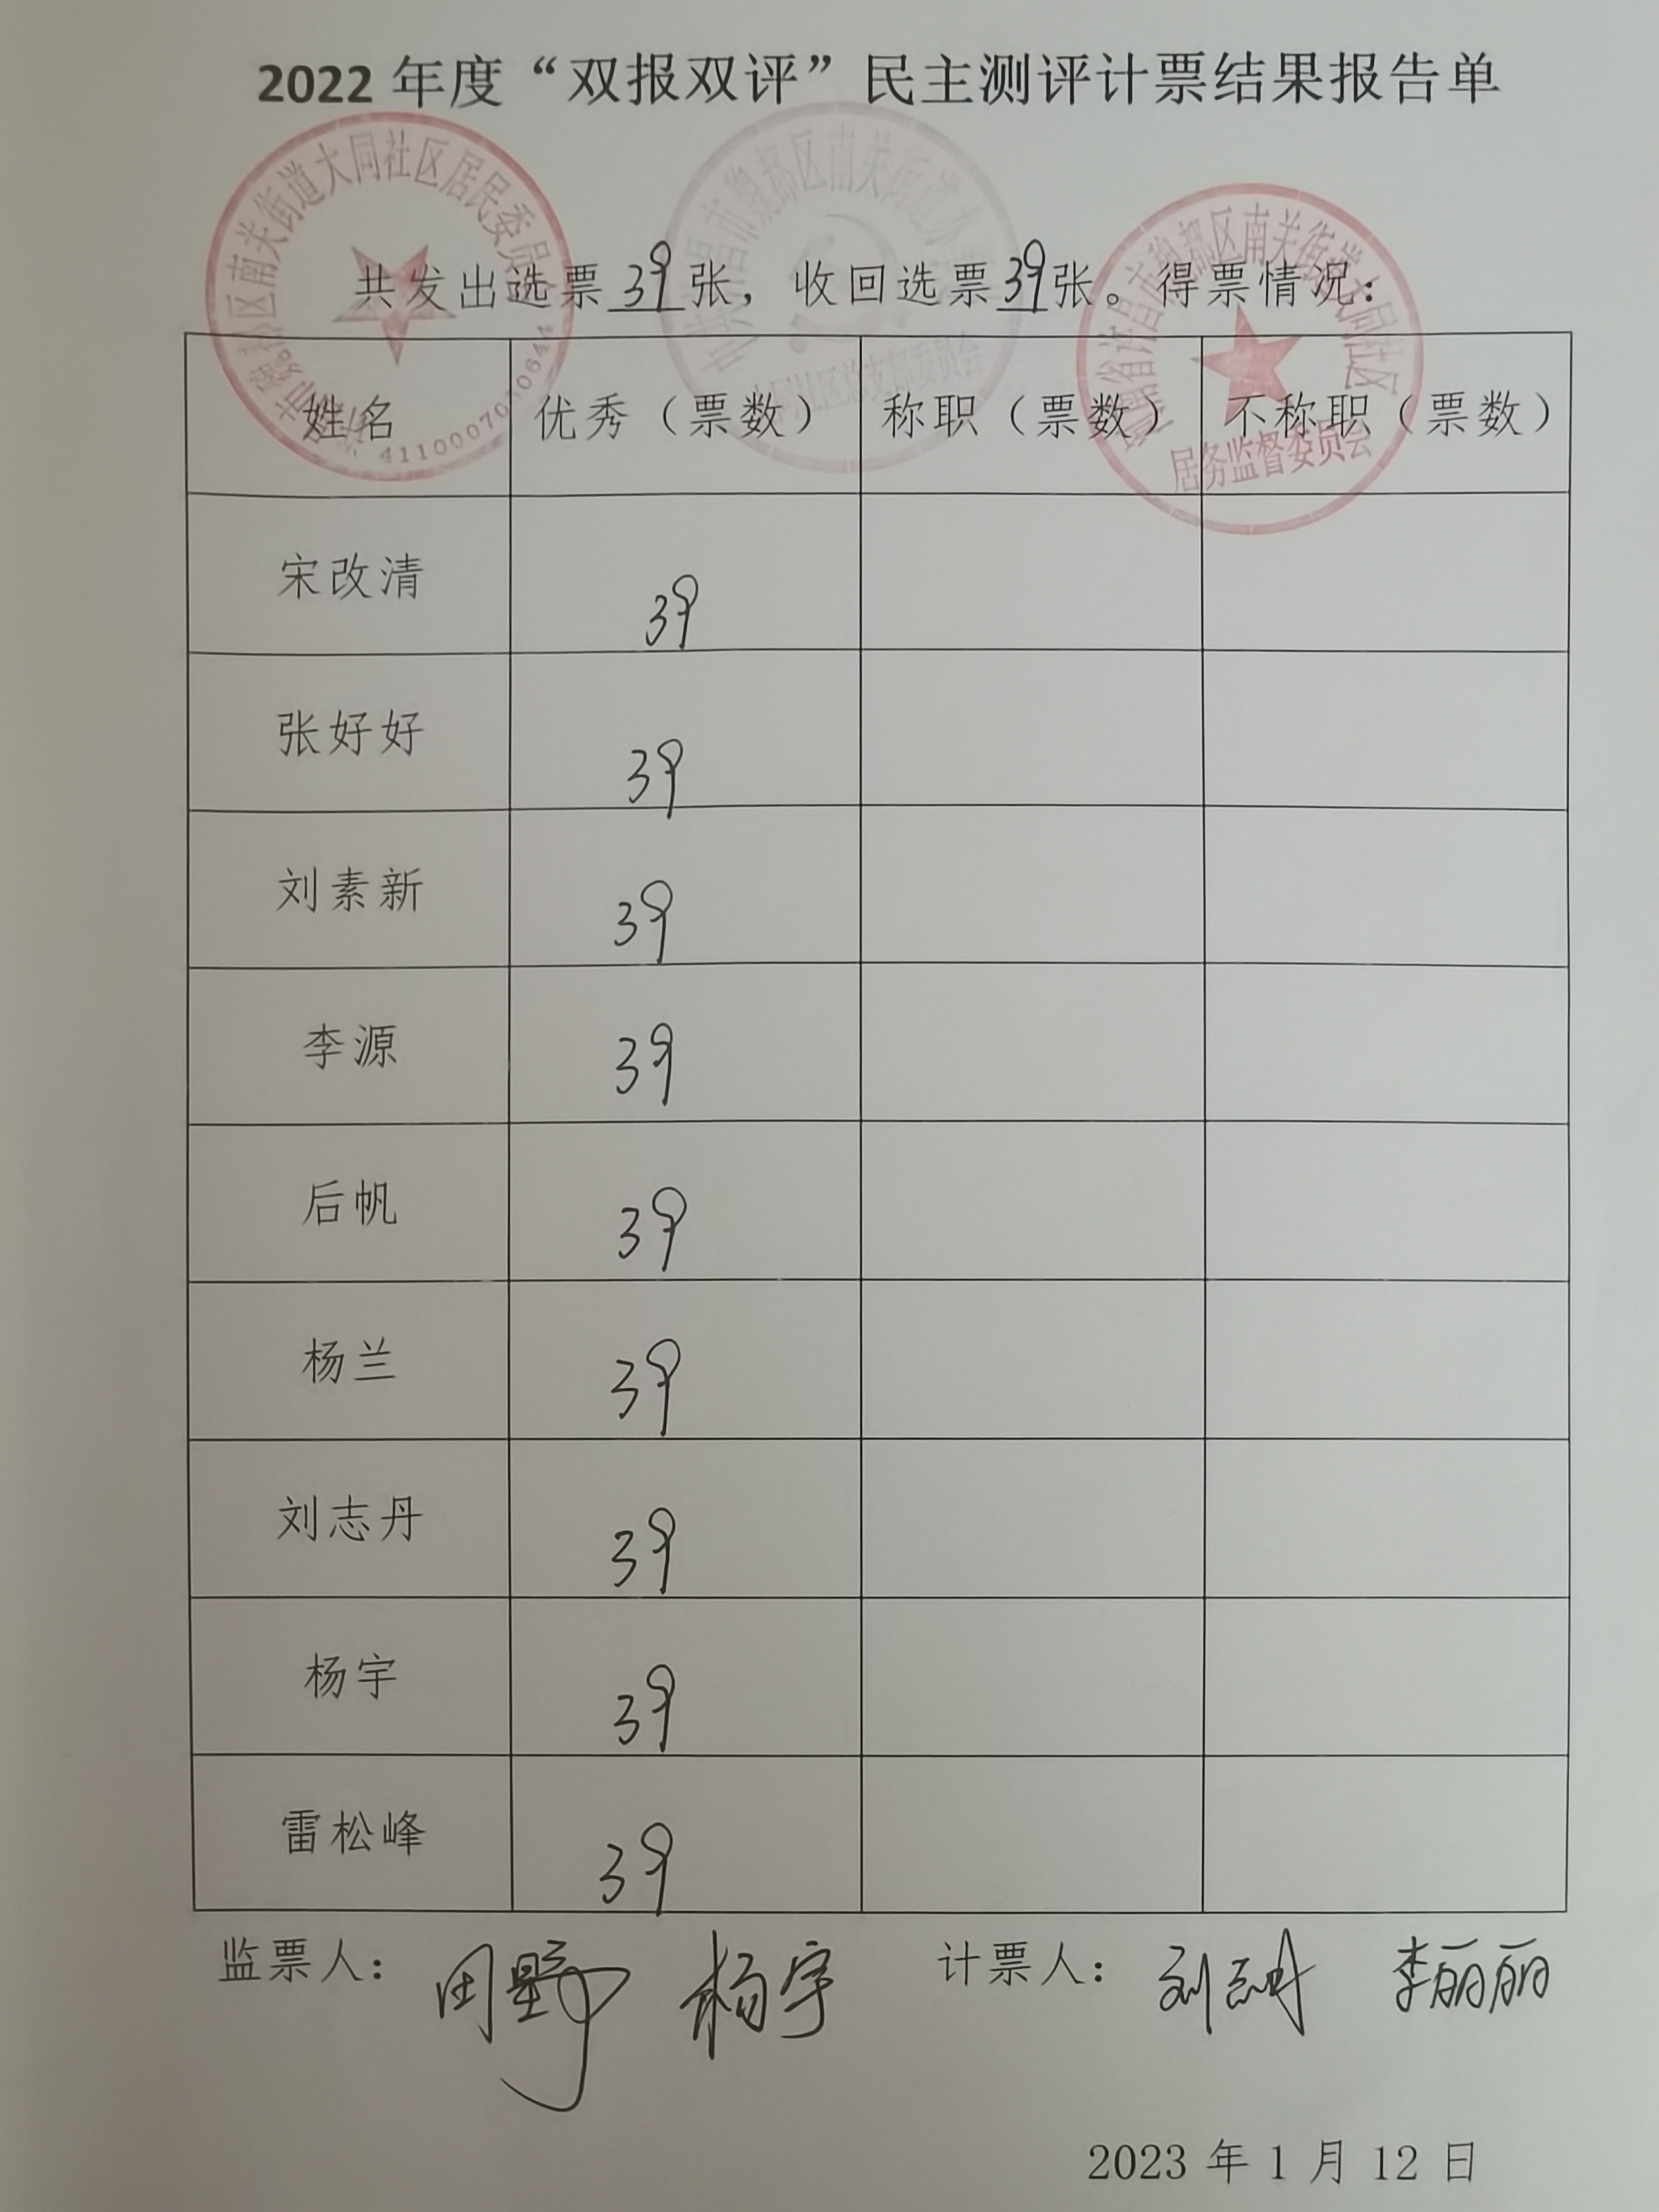 2022 年度“双报双评”民主测评计票结果报告单
共发出选票 39 张，收回选票 39 张。得票情况：
姓名 优秀（票数） 称职（票数） 不称职（票数）
宋改清 39
张好好 39
刘素新 39
李源 39
后帆 39
杨兰 39
刘志丹 39
杨宇 39
雷松峰 39
监票人： 田野 杨宇 计票人： 刘志丹 李丽丽
2023 年 1 月 12 日
区南关街道大同社区居民委员
41100070
昌市魏都区南关街道办
同社区总支部委员会
区南关街
居务监督委员会